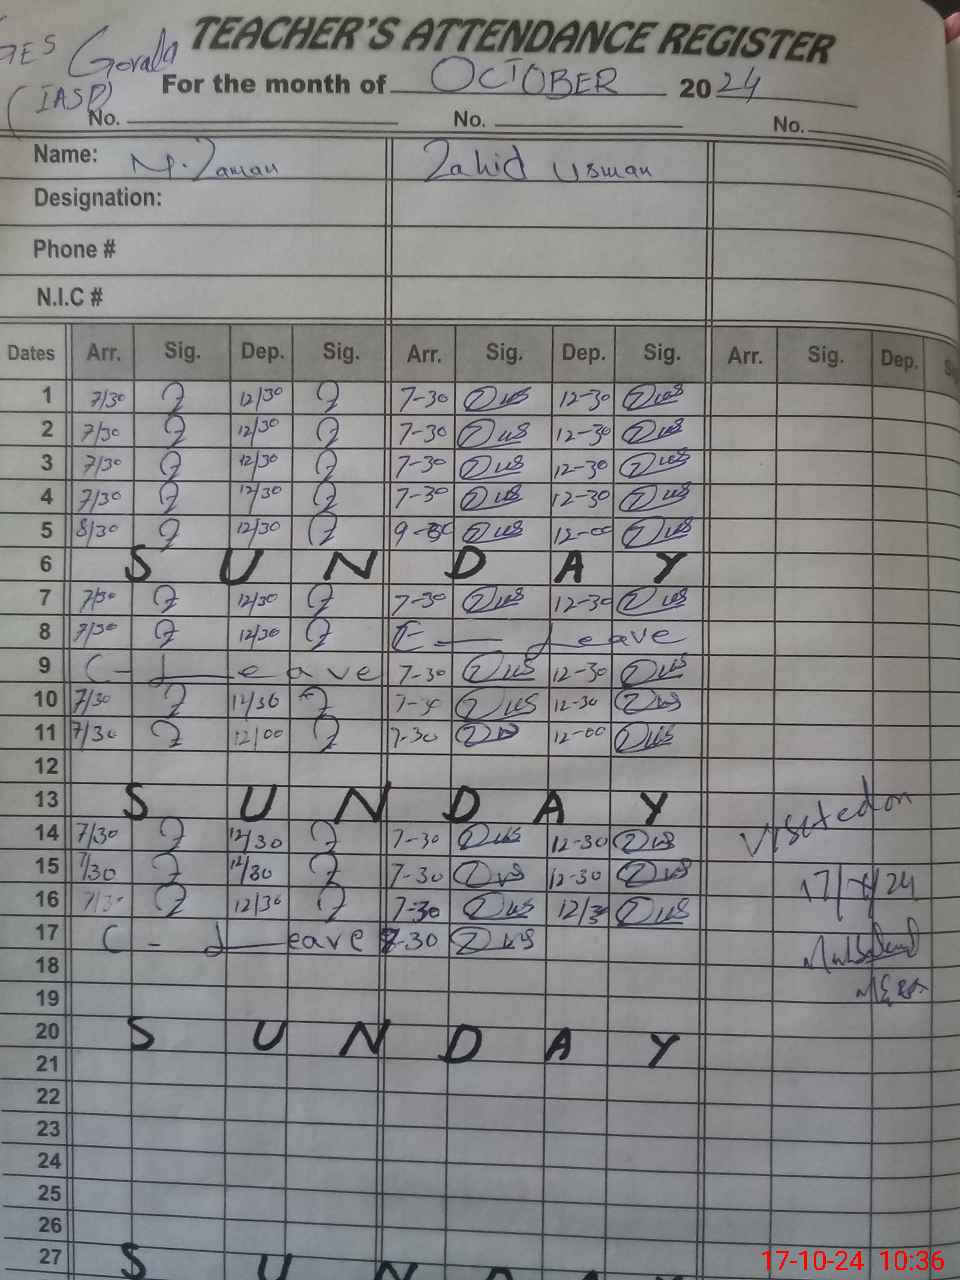 GES Gorala TEACHER'S ATTENDANCE REGISTER
(IASP) For the month of OCTOBER 2024
No. No. No.
Name: M. Zaman Zahid Usman
Designation:
Phone #
N.I.C #
Dates Arr. Sig. Dep. Sig. Arr. Sig. Dep. Sig. Arr. Sig. Dep.
1 7/30 12/30 7-30 12-30
2 7/30 12/30 7-30 12-30
3 7/30 12/30 7-30 12-30
4 7/30 12/30 7-30 12-30
5 8/30 12/30 12-00
6 S U N D A Y
7 7/30 12/30 7-30 12-30
8 7/30 12/30 Leave
9 C - Leave 7-30 12-30
10 7/30 12/30 7-30 12-30
11 7/30 12/00 7-30 12-00
12
13 S U N D A Y
14 7/30 12/30 7-30 12-30
15 7/30 12/30 7-30 12-30
16 7/30 12/30 7-30 12/30
17 C - Leave 7-30
18
19
20 S U N D A Y
21
22
23
24
25
26
27 S U N D A Y
Visited on
17/ /24
17-10-24 10:36